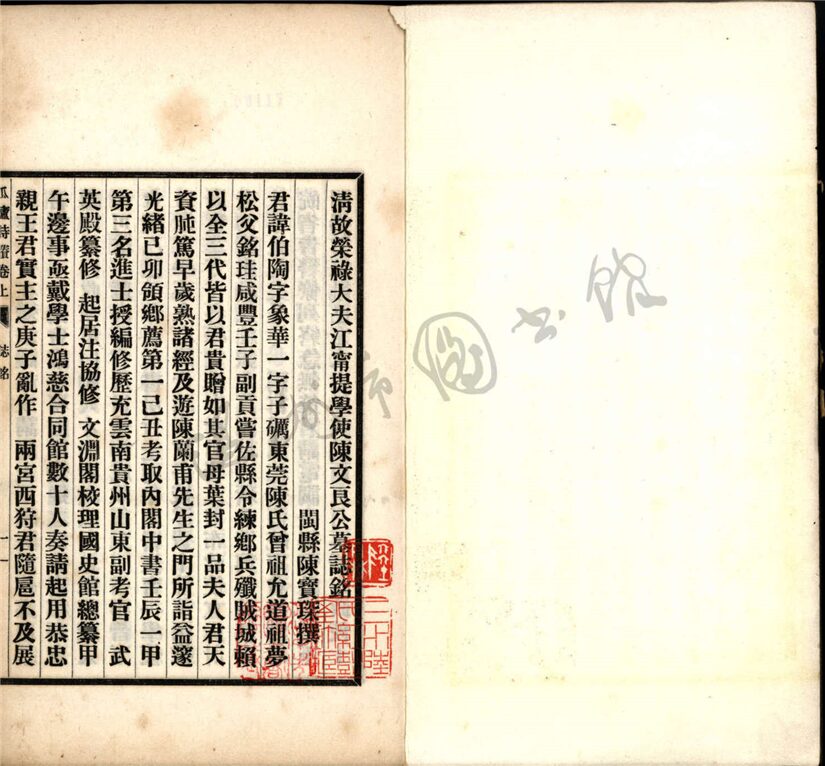 清故榮祿大夫江甯提學使陳文良公墓誌銘
閩縣陳寶琛撰
君諱伯陶字象華一字子礪東莞陳氏曾祖允道祖夢
松父銘珪咸豐壬子副貢嘗佐縣令練鄉兵殲賊城賴
以全三代皆以君貴贈如其官母葉封一品夫人君天
資肫篤早歲熟諸經及遊陳蘭甫先生之門所詣益邃
光緒己卯領鄉薦第一己丑考取內閣中書壬辰一甲
第三名進士授編修歷充雲南貴州山東副考官 武
英殿纂修 起居注協修 文淵閣校理國史館總纂甲
午邊事亟戴學士鴻慈合同館數十人奏請起用恭忠
親王君實主之庚子亂作 兩宮西狩君隨扈不及展
瓜廬詩賸卷上 誌銘 一
書館